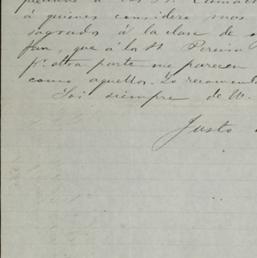 á quienes considero mas
sagrados á la clase de
fan, que á la St Pereira
pr. otra parte me parecen
como aquellos. Lo recomend
Soi siempre de W.
Justo